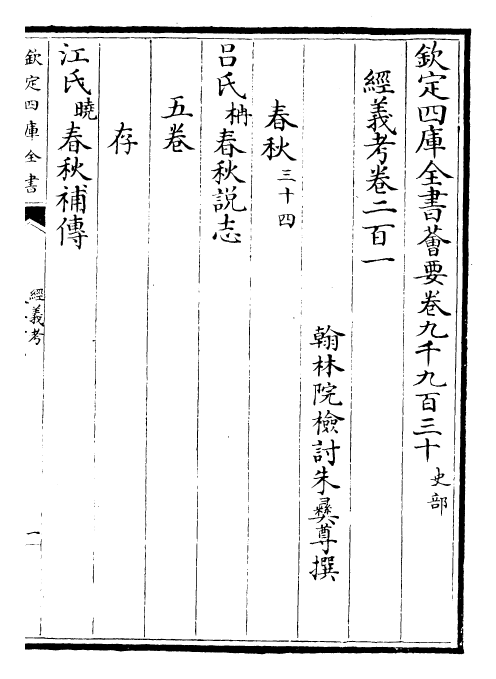 欽定四庫全書薈要卷九千九百三十 史部
經義考卷二百一
翰林院檢討朱彝尊撰
春秋三十四
呂氏柟春秋說志
五卷
存
江氏曉春秋補傳
欽定四庫全書
經義考
一